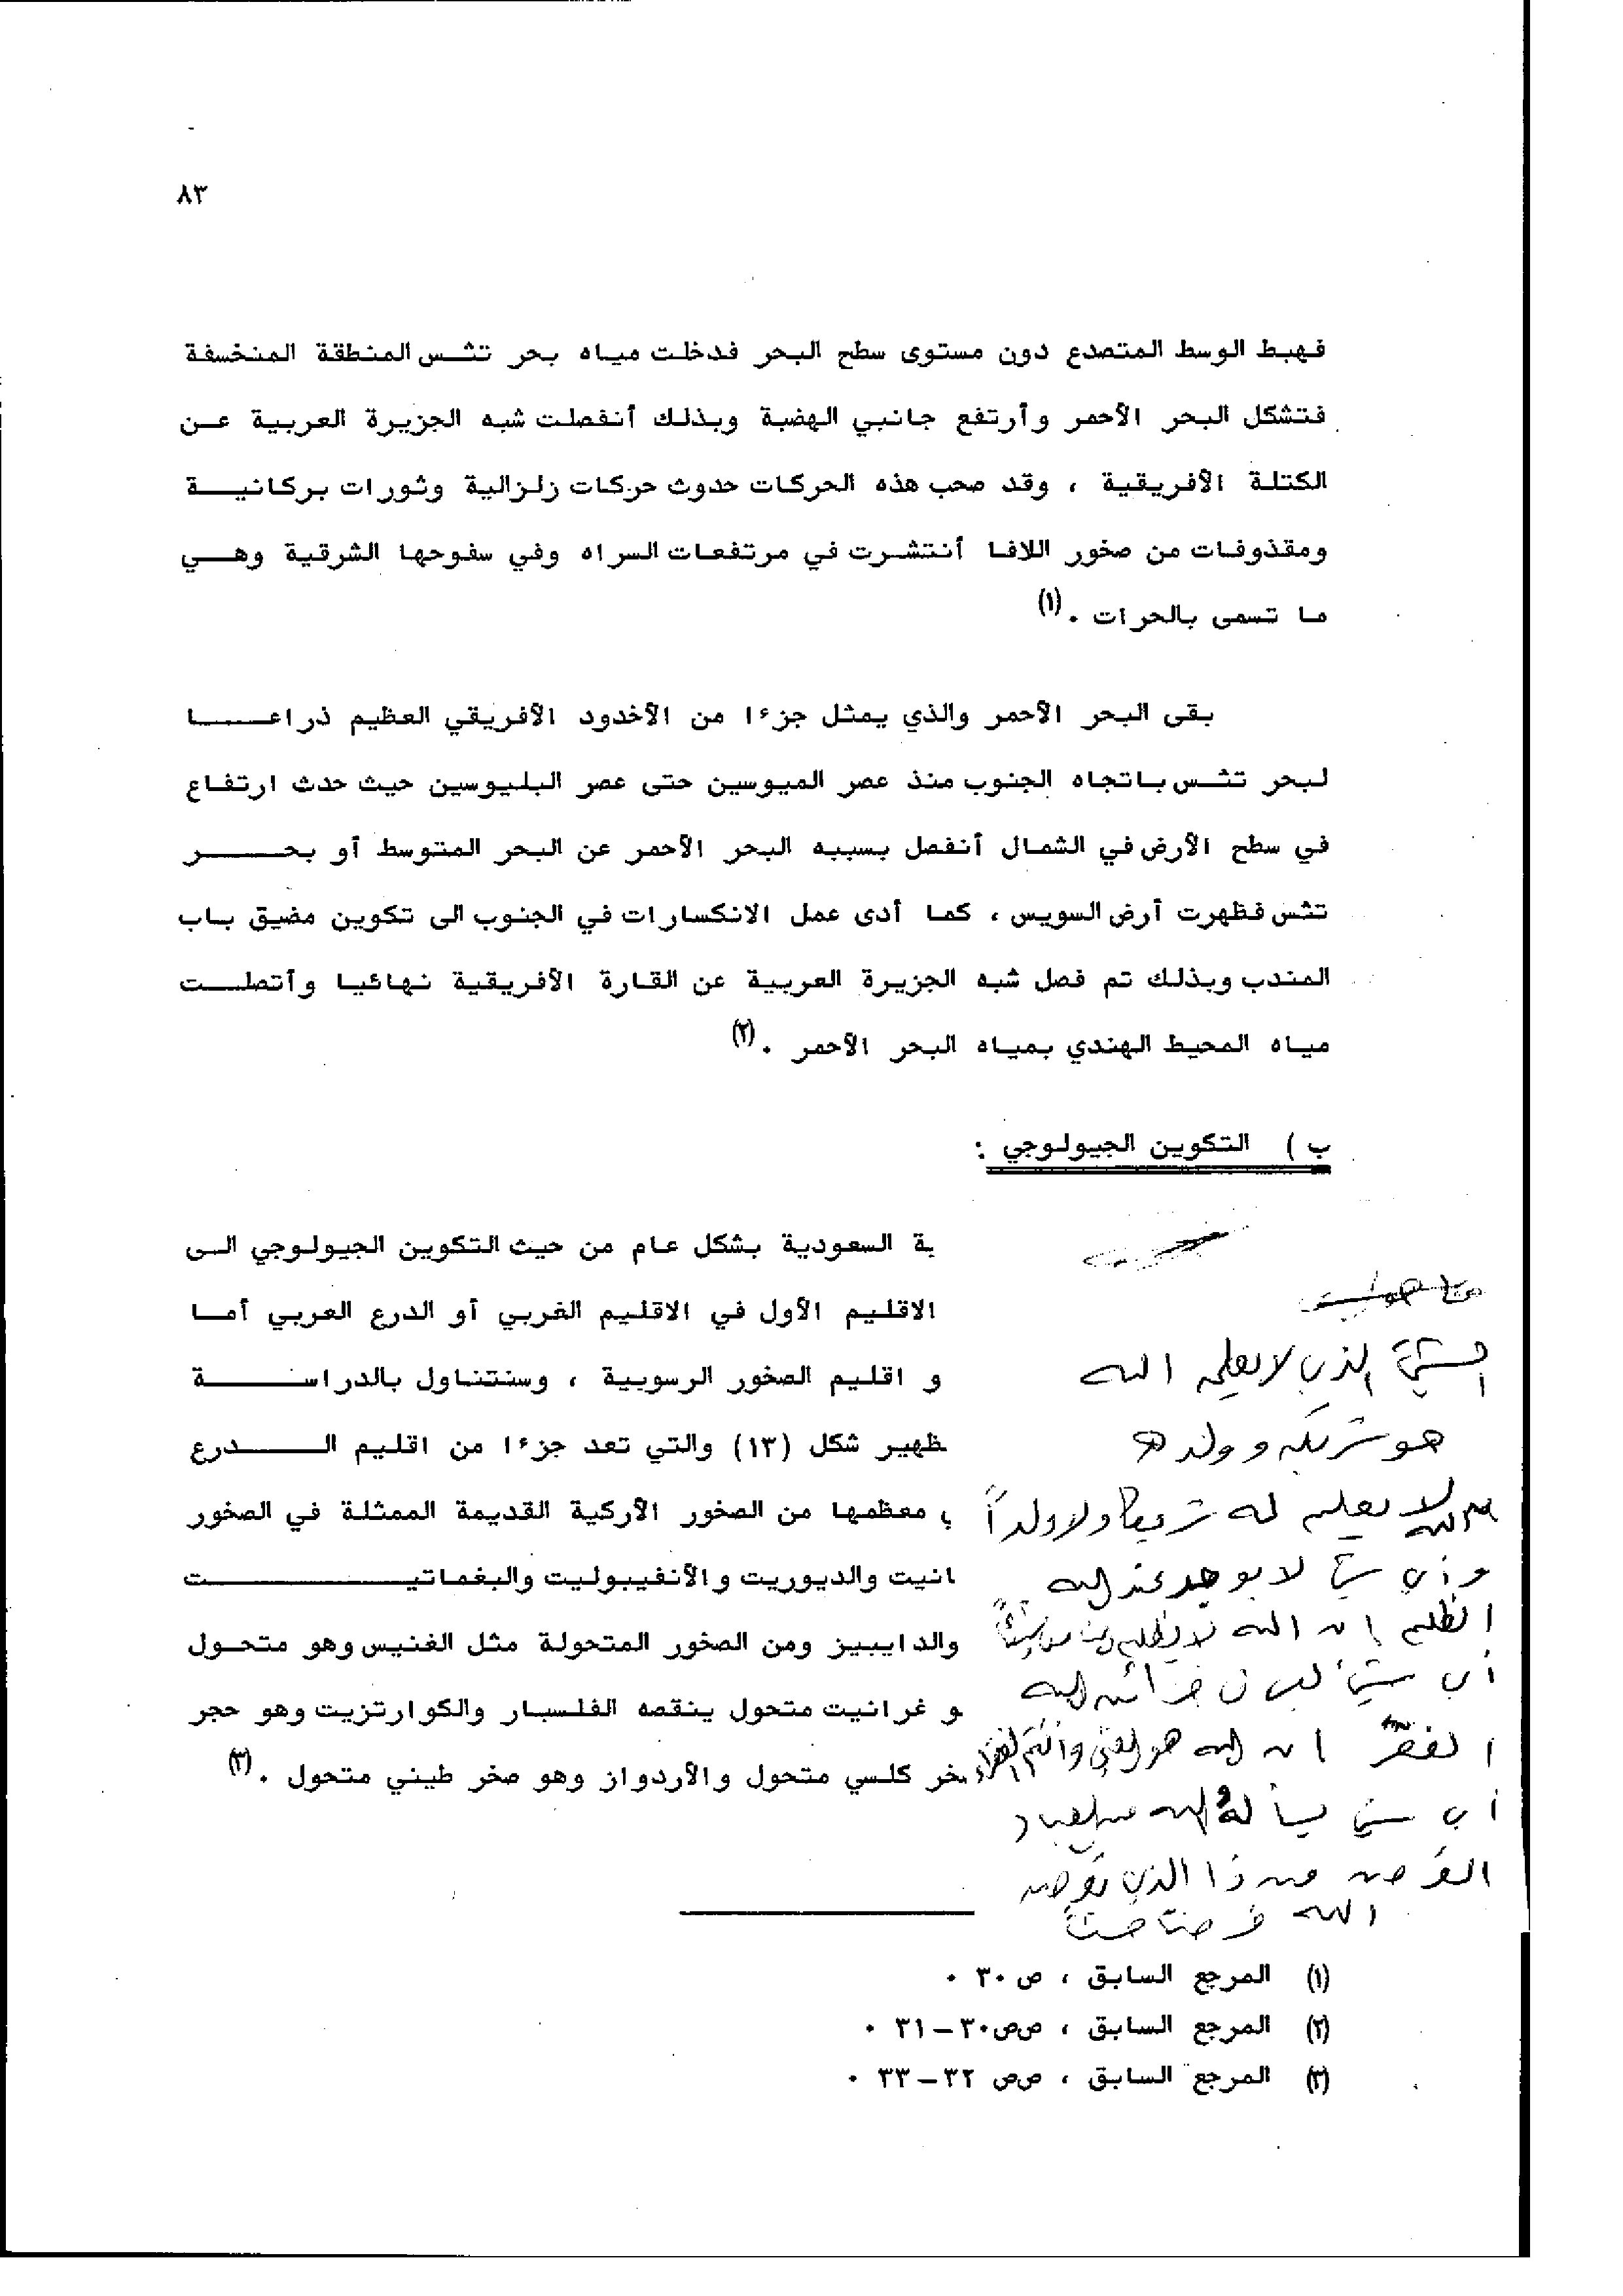 ٨٣
فهبط الوسط المتصدع دون مستوى سطح البحر فدخلت مياه بحر تثس المنطقة المنخسفة
فتشكل البحر الأحمر وأرتفع جانبي الهضبة وبذلك أنفصلت شبه الجزيرة العربية عن
الكتلة الأفريقية ، وقد صحب هذه الحركات حدوث حركات زلزالية وثورات بركانية
ومقذوفات من صخور اللافا أنتشرت في مرتفعات السراه وفي سفوحها الشرقية وهي
ما تسمى بالحرات . (١)
بقى البحر الأحمر والذي يمثل جزءا من الأخدود الأفريقي العظيم ذراعا
لبحر تثس باتجاه الجنوب منذ عصر الميوسين حتى عصر البليوسين حيث حدث ارتفاع
في سطح الأرض في الشمال أنفصل بسببه البحر الأحمر عن البحر المتوسط أو بحر
تثس فظهرت أرض السويس ، كما أدى عمل الانكسارات في الجنوب الى تكوين مضيق باب
المندب وبذلك تم فصل شبه الجزيرة العربية عن القارة الأفريقية نهائيا وأتصلت
مياه المحيط الهندي بمياه البحر الأحمر . (٢)
ب ) التكوين الجيولوجي :
ية السعودية بشكل عام من حيث التكوين الجيولوجي الى
الاقليم الأول في الاقليم الغربي أو الدرع العربي أما
و اقليم الصخور الرسوبية ، وسنتناول بالدراسة
ظهير شكل (١٣) والتي تعد جزءا من اقليم الدرع
معظمها من الصخور الأركية القديمة الممثلة في الصخور
انيت والديوريت والأنفيبوليت والبغماتيت
والدايبيز ومن الصخور المتحولة مثل الغنيس وهو متحول
و غرانيت متحول ينقصه الفلسبار والكوارتزيت وهو حجر
خر كلسي متحول والأردواز وهو صخر طيني متحول . (٣)
الشيء الذي لا يعلمه الله
هو شريكه وولده
لا يعلم له شريكا ولا ولداً
وأي شيء لا يوجد عند الله
الظلم ان الله لا يظلم الناس شيئاً
أي شيء ليس في خزائن الله
الفقر ان الله هو الغني وأنتم الفقراء
أي شيء يسأله الله من العباد
القرض من ذا الذي يقرض
الله قرضا حسناً
(١) المرجع السابق ، ص ٣٠ .
(٢) المرجع السابق ، صص ٣٠ – ٣١ .
(٣) المرجع السابق ، صص ٣٢ – ٣٣ .